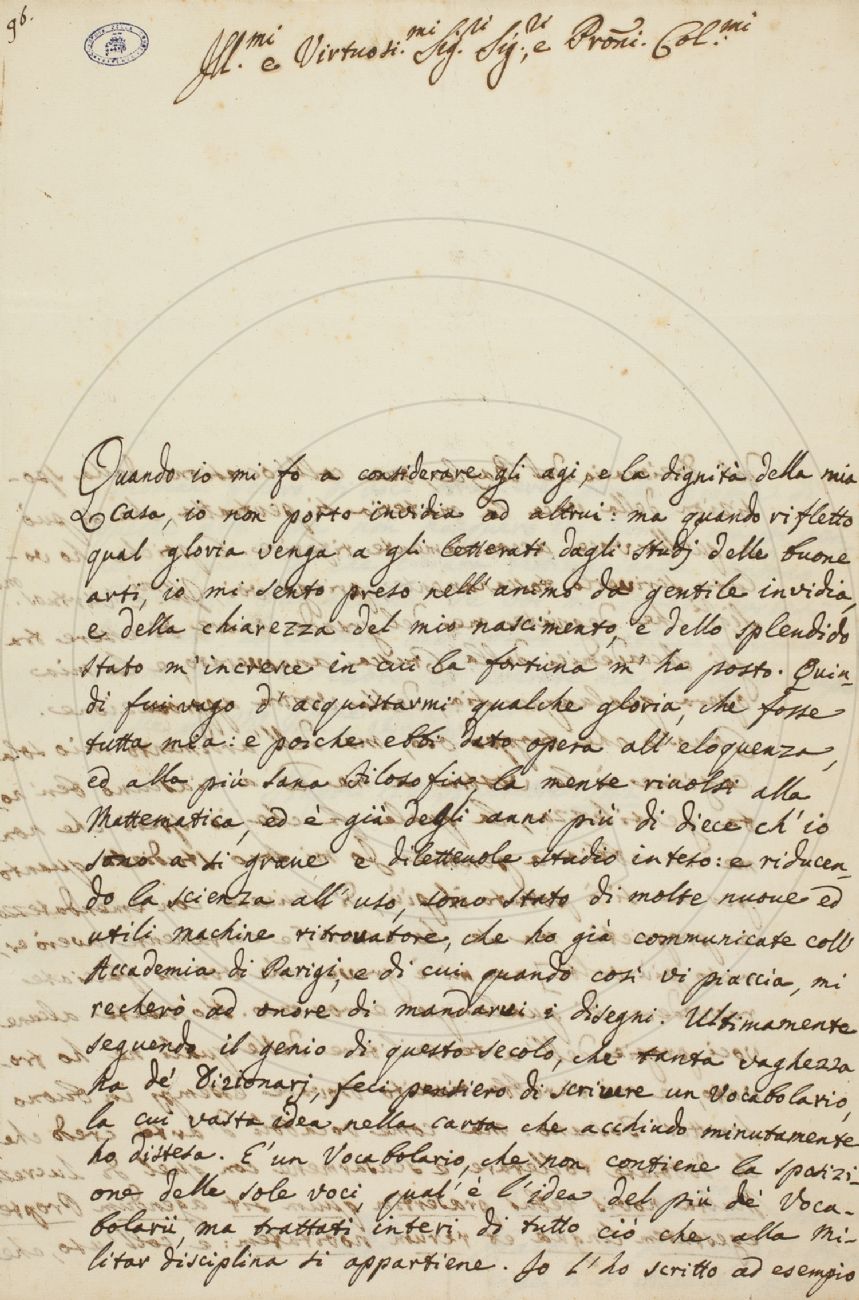 96.
Ill.mi e Virtuosi.mi Sig.ri Sig.ri, e Proñi. Col.mi
Quando io mi fo a considerare gli agi, e la dignità della mia
Casa, io non porto invidia ad altrui: ma quando rifletto
qual gloria venga a gli letterati dagli studj delle buone
arti, io mi sento preso nell'animo da gentile invidia,
e della chiarezza del mio nascimento, e dello splendido
stato m'incresce in cui la fortuna m'ha posto. Quin-
di fui vago d'acquistarmi qualche gloria, che fosse
tutta mea: e poiche ebbi dato opera all'eloquenza,
ed alla più sana Filosofia, la mente rivolsi alla
Mattematica, ed è già degli anni più di diece ch'io
sono a si grave e dilettevole studio inteso: e riducen-
do la scienza all'uso, sono stato di molte nuove ed
utili machine ritrovatore, che ho già communicate coll'
Accademia di Parigi, e di cui quando così vi piaccia, mi
recherò ad onore di mandarvi i disegni. Ultimamente
seguendo il genio di questo secolo, che tanta vaghezza
ha de' Dizionarj, feci pensiero di scrivere un Vocabolario,
la cui vasta idea nella carta che acchiudo minutamente
ho distesa. E' un Vocabolario, che non contiene la sposizi-
one delle sole voci, qual'è l'idea del più de' Voca-
bolarii, ma trattati interi di tutto ciò che alla Mi-
litar disciplina si appartiene. Io l'ho scritto ad esempio